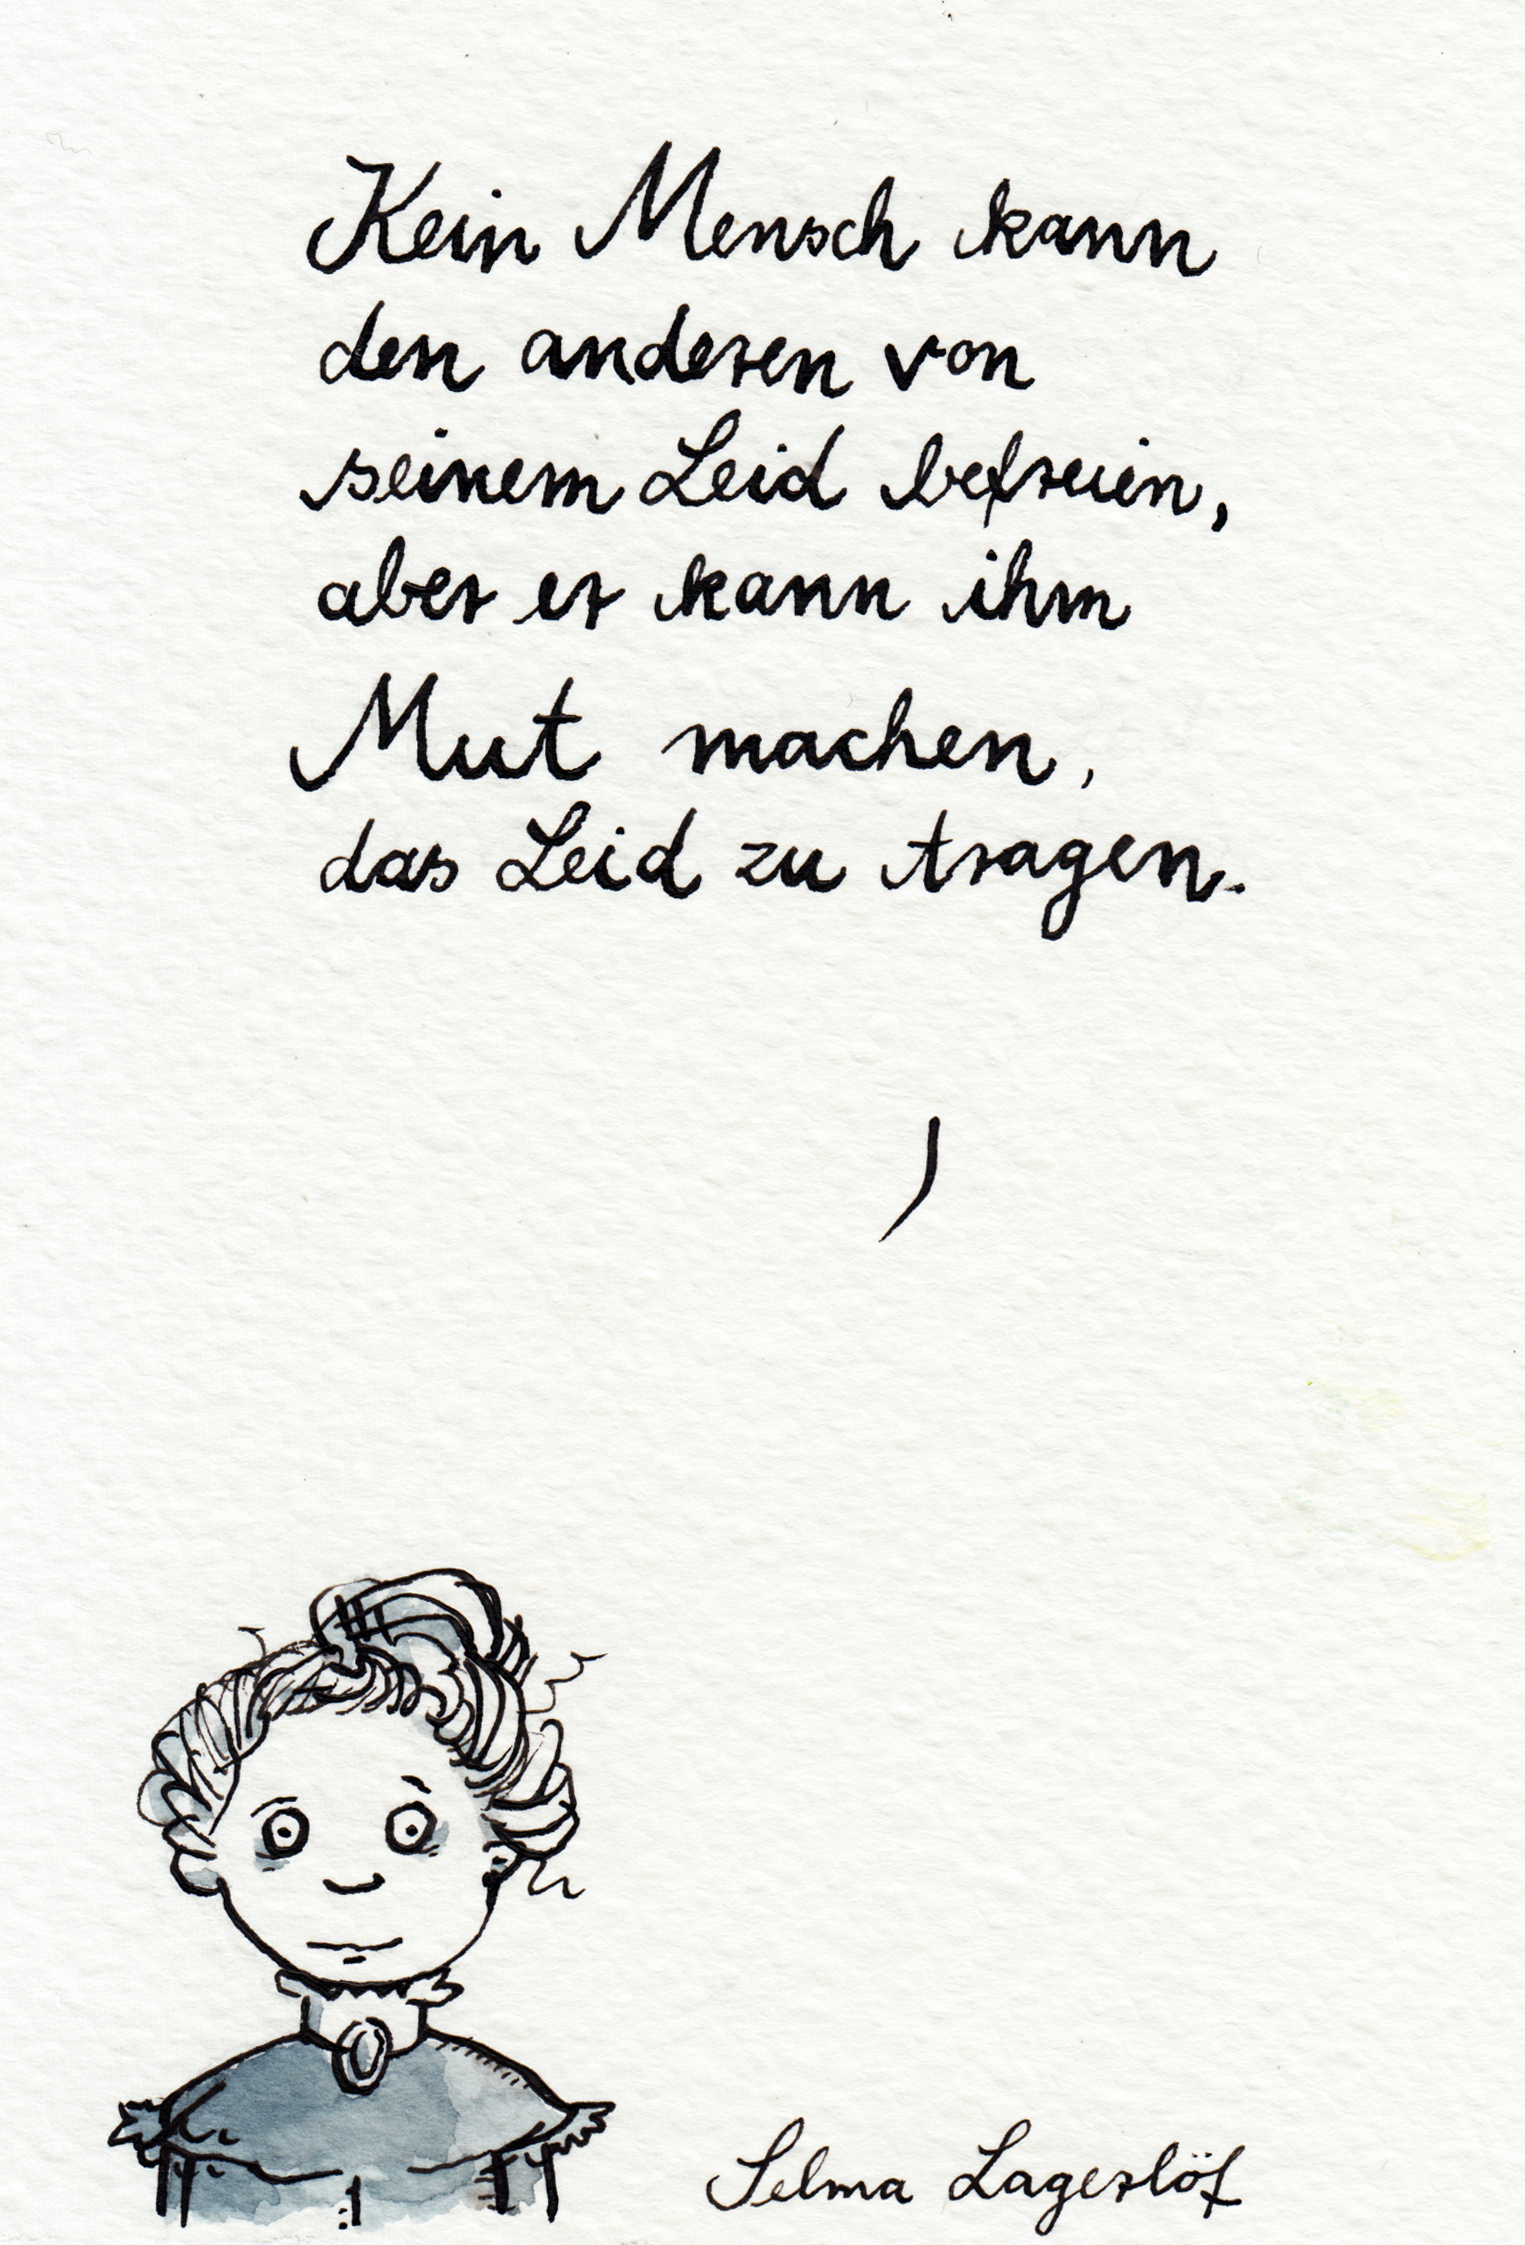 Kein Mensch kann
den anderen von
seinem Leid befreien,
aber er kann ihm
Mut machen,
das Leid zu tragen.
Selma Lagerlöf